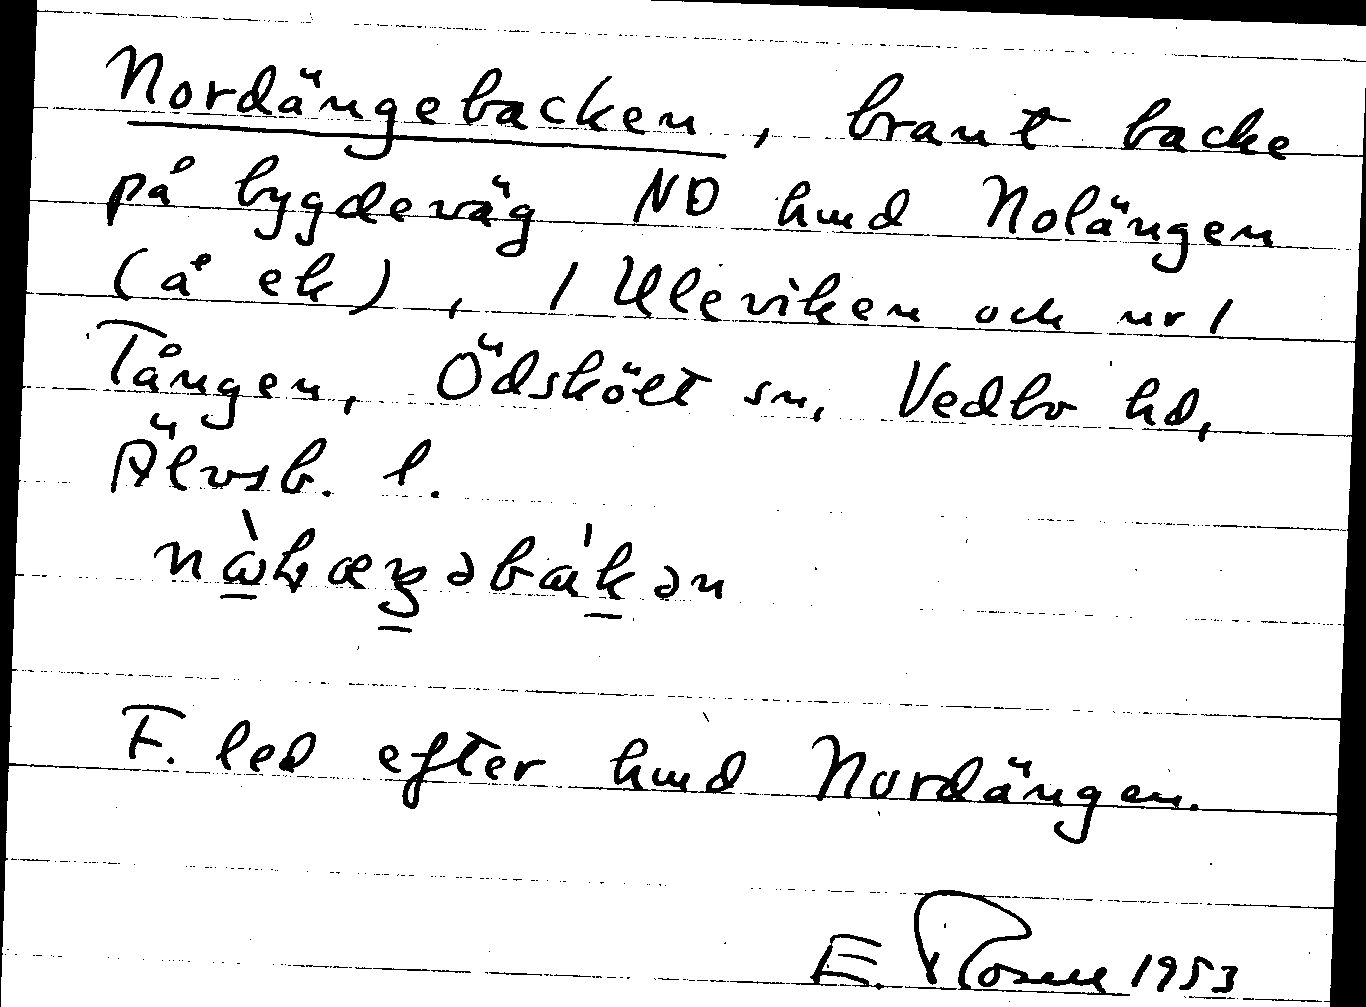 Nordängebacken, brant backe
på bygdeväg NO hmd Nolängen
(å ek), 1 Uleviken och nr 1
Tången, Ödskölt sn, Vedbo hd,
Älvsb. l.
F. led efter hmd Nordängen.
E. Rosell 1953